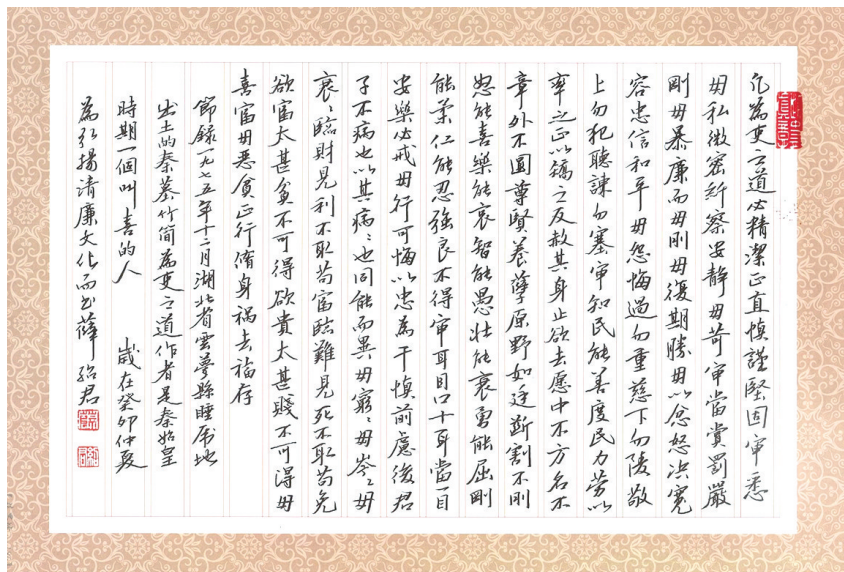 凡為吏之道必精潔正直慎謹堅固審悉
毋私微密纖察安靜毋苛審當賞罰嚴
剛毋暴廉而毋刖毋復期勝毋以忿怒決寬
容忠信和平毋怨悔過勿重慈下勿陵敬
上勿犯聽諫勿塞審知民能善度民力勞以
率之正以矯之反赦其身止欲去愿中不方名不
章外不圓尊賢養孽原野如廷斷割不刖
怒能喜樂能哀智能愚壯能衰勇能屈剛
能柔仁能忍強良不得審耳目口十耳當一目
安樂必戒毋行可悔以忠為干慎前慮後君
子不病也以其病〻也同能而異毋窮〻毋岑〻毋
衰〻臨財見利不取苟富臨難見死不取苟免
欲富太甚貧不可得欲貴太甚賤不可得毋
喜富毋惡貧正行脩身禍去福存
節錄一九七五年十二月湖北省雲夢縣睡虎地
出土的秦墓竹简為吏之道作者是秦始皇
時期一個叫喜的人 歲在癸卯仲夏
為弘揚清廉文化而書薛紹君